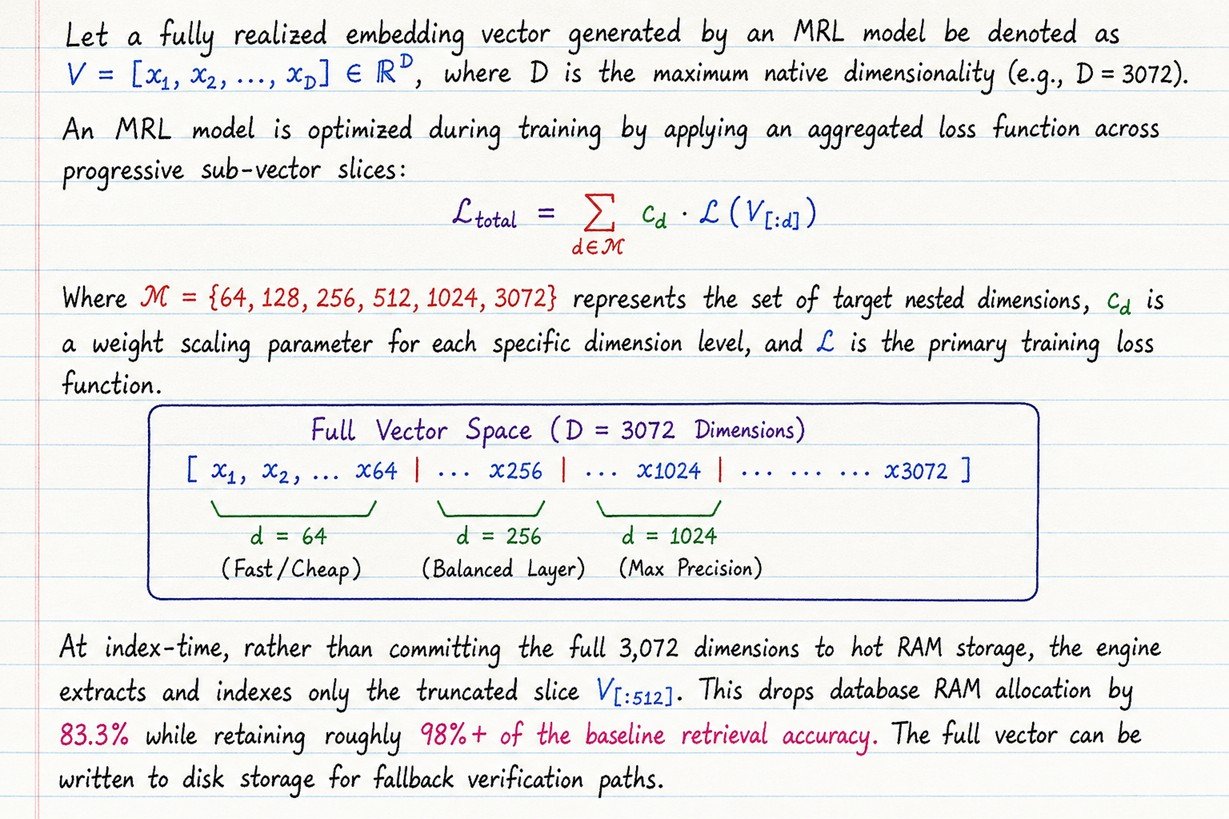 Let a fully realized embedding vector generated by an MRL model be denoted as
V = [x₁, x₂, ..., x_D] ∈ ℝᴰ, where D is the maximum native dimensionality (e.g., D = 3072).
An MRL model is optimized during training by applying an aggregated loss function across
progressive sub-vector slices:
ℒ_total = ∑_{d∈ℳ} c_d · ℒ(V_[:d])
Where ℳ = {64, 128, 256, 512, 1024, 3072} represents the set of target nested dimensions, c_d is
a weight scaling parameter for each specific dimension level, and ℒ is the primary training loss
function.
Full Vector Space (D = 3072 Dimensions)
[ x₁, x₂, ... x64 | ... x256 | ... x1024 | ... ... ... x3072 ]
d = 64 d = 256 d = 1024
(Fast/Cheap) (Balanced Layer) (Max Precision)
At index-time, rather than committing the full 3,072 dimensions to hot RAM storage, the engine
extracts and indexes only the truncated slice V_[:512]. This drops database RAM allocation by
83.3% while retaining roughly 98%+ of the baseline retrieval accuracy. The full vector can be
written to disk storage for fallback verification paths.